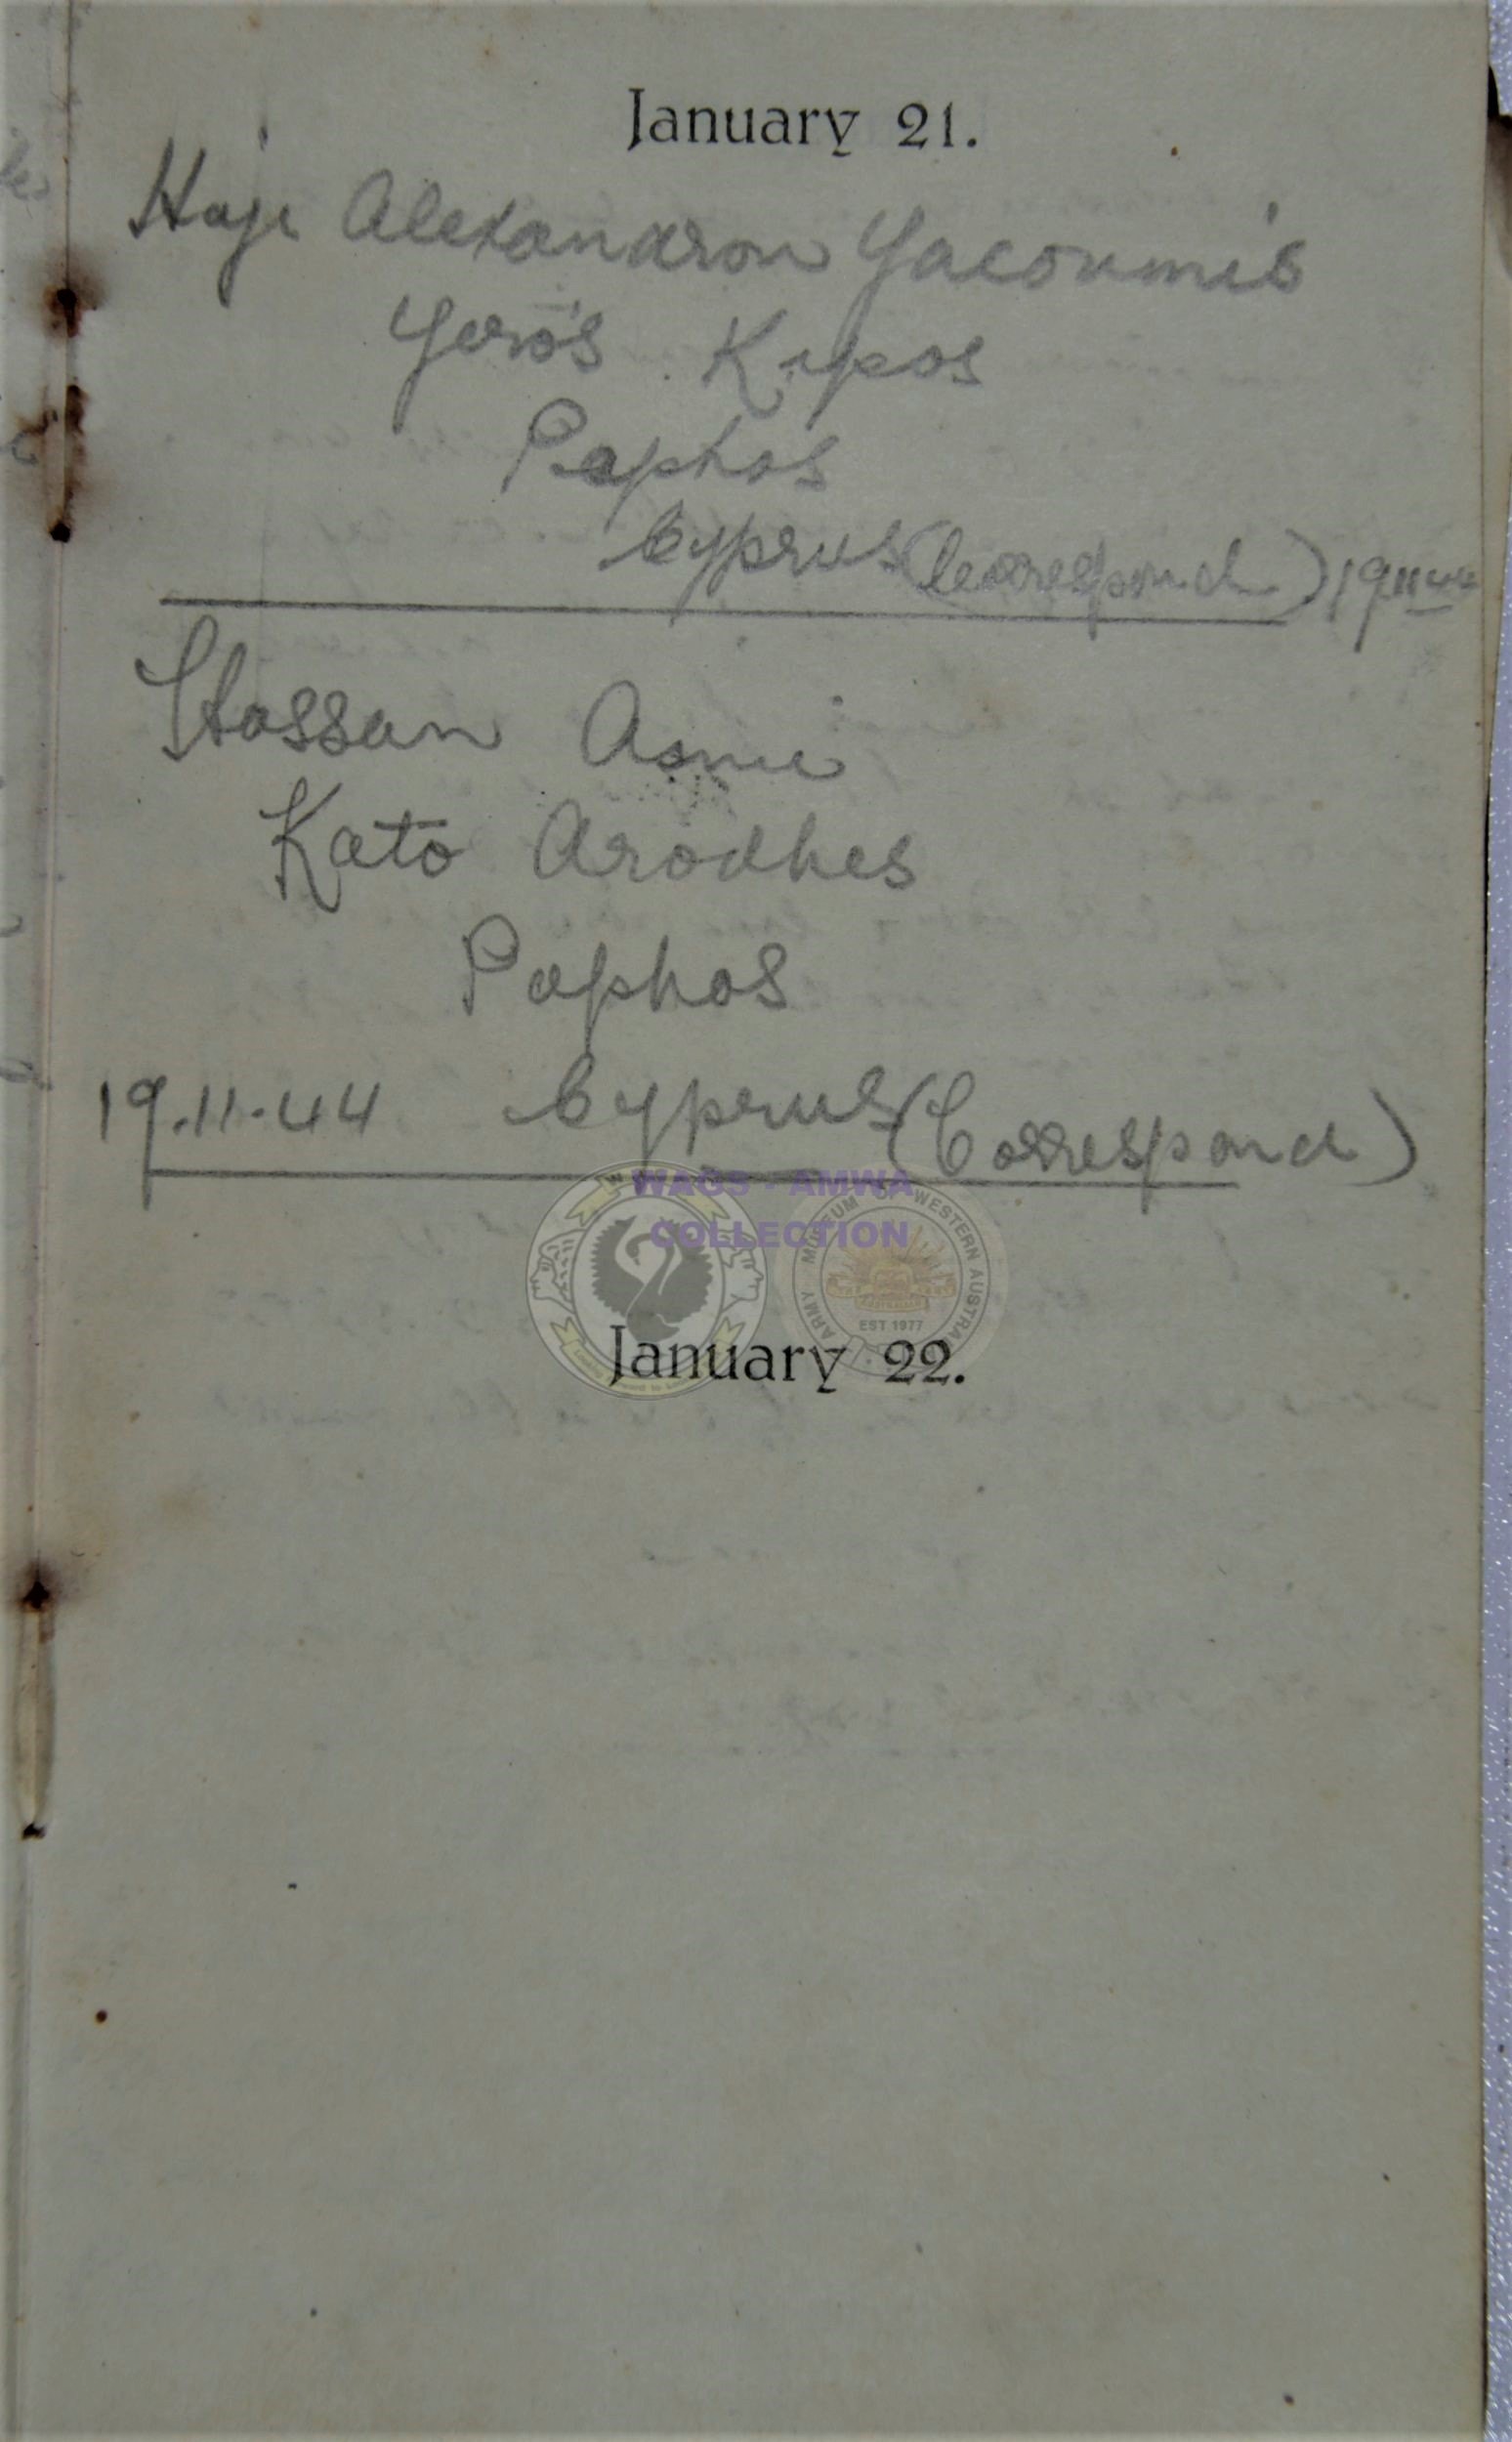 January 21.
Haji Alexandrou Yacoumis
Yeros Kypos
Paphos
Cyprus (Correspond) 19.11.44
Hassan Asmi
Kato Arodhes
Paphos
19.11.44 Cyprus (Correspond)
WAGS - AMWA
COLLECTION
ARMY MUSEUM OF WESTERN AUSTRALIA
EST 1977
January 22.